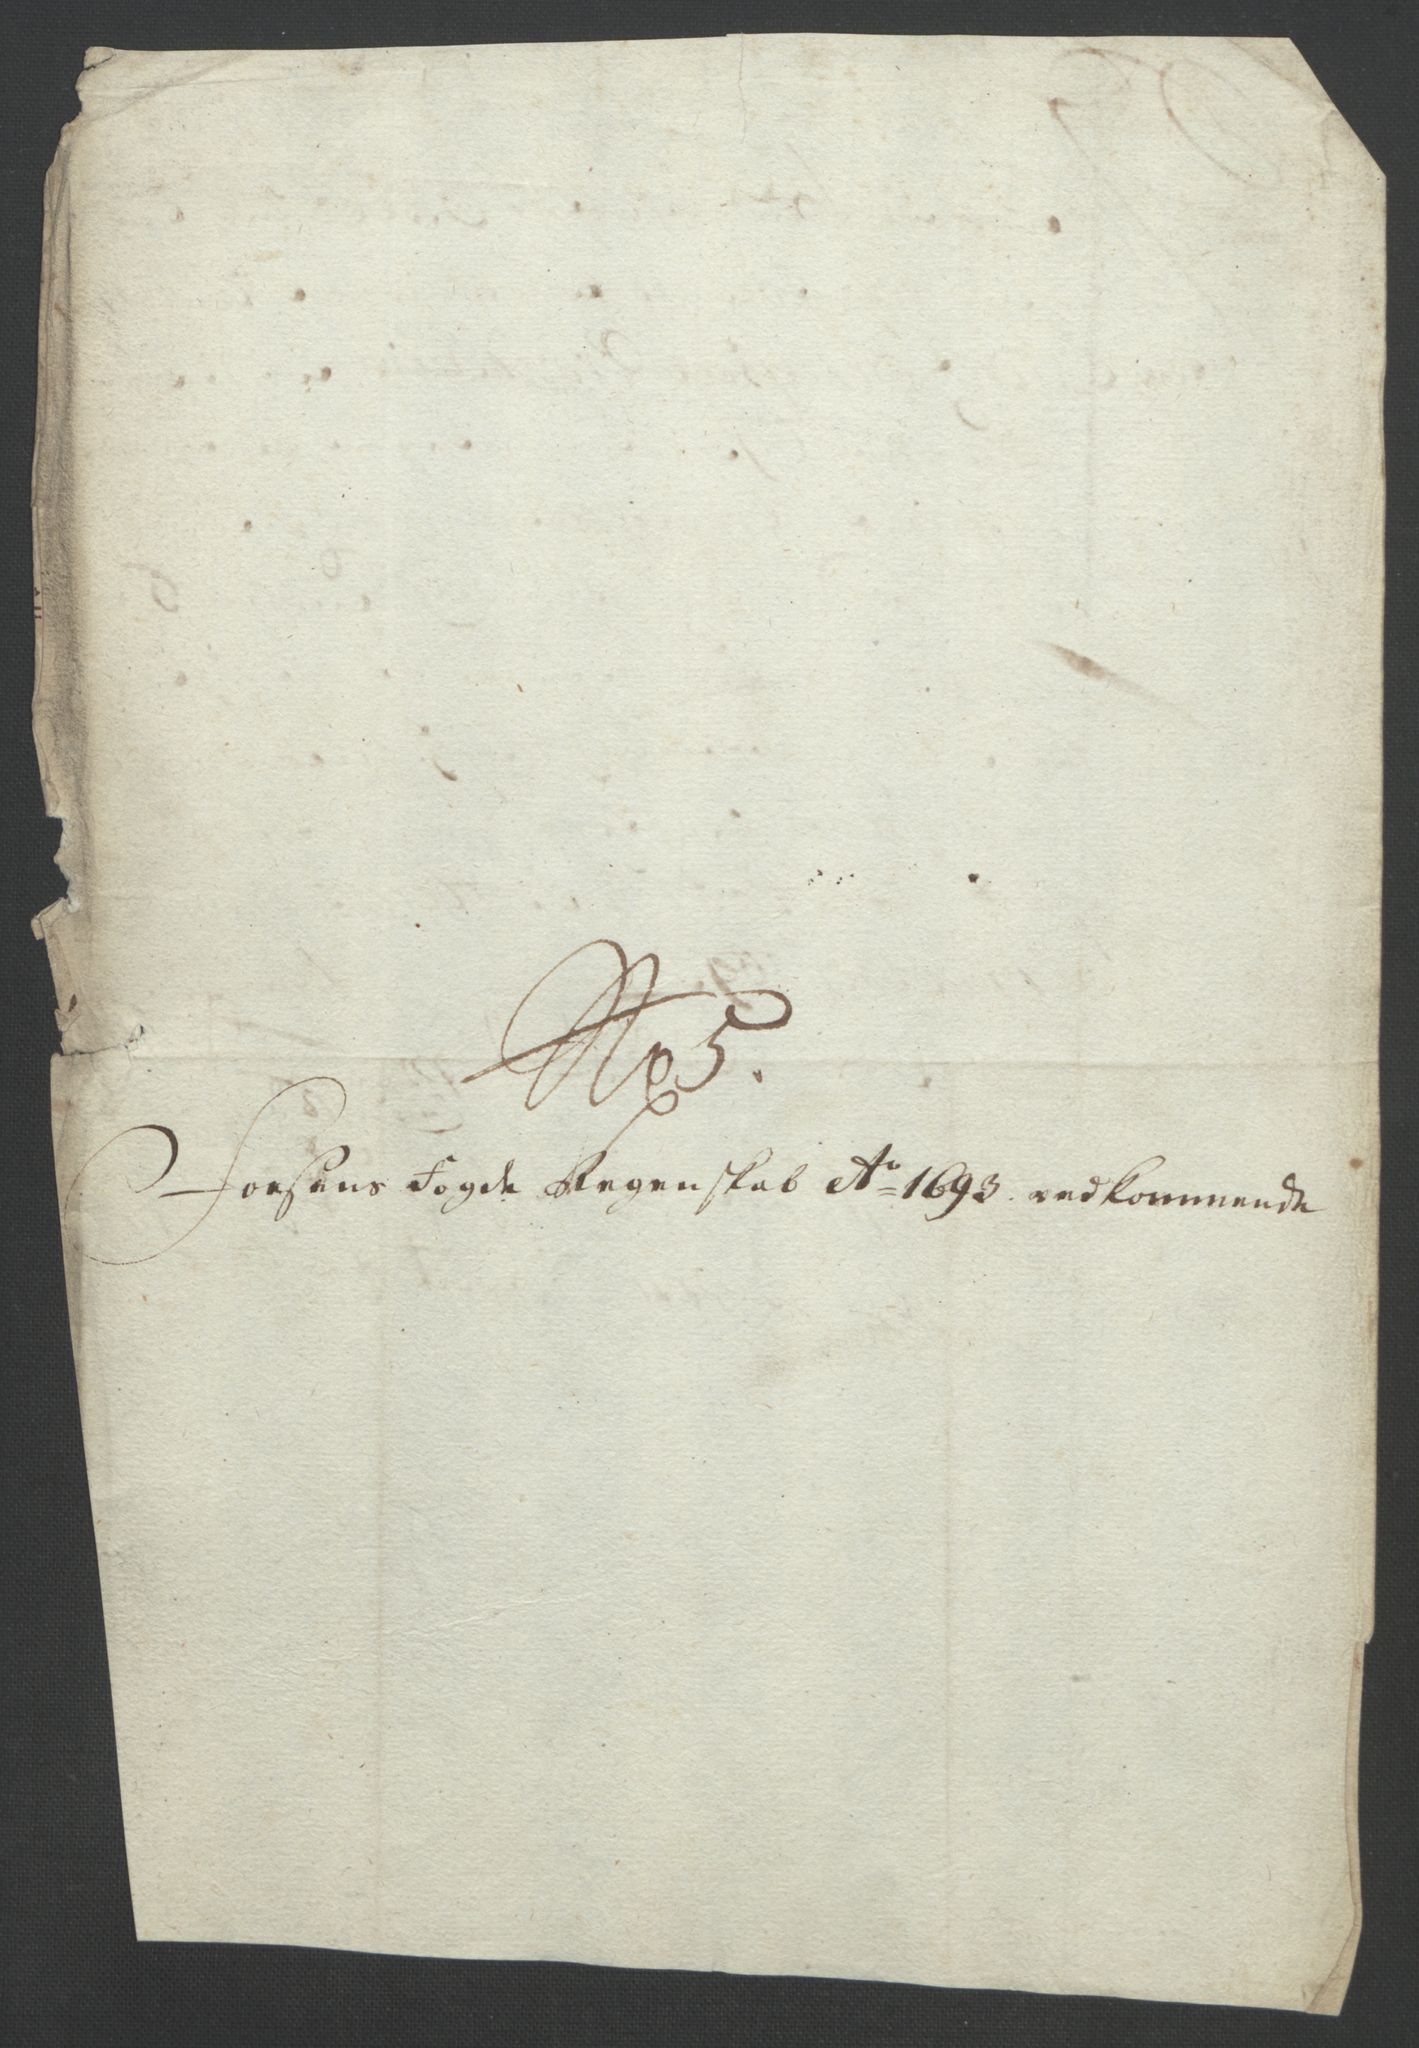 No 5.
Fosens Fogde Regenskab Ao 1693. vedkommende